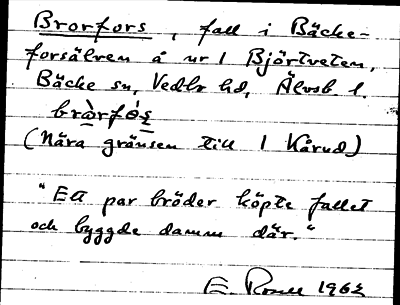 Brorfors, fall i Bäcke-
forsälven å nr 1 Björtveten,
Bäcke sn, Vedbo hd, Älvsb. l.
bròrfòs
(Nära gränsen till 1 Kårud)
"Ett par bröder köpte fallet
och byggde damm där."
E. 1962